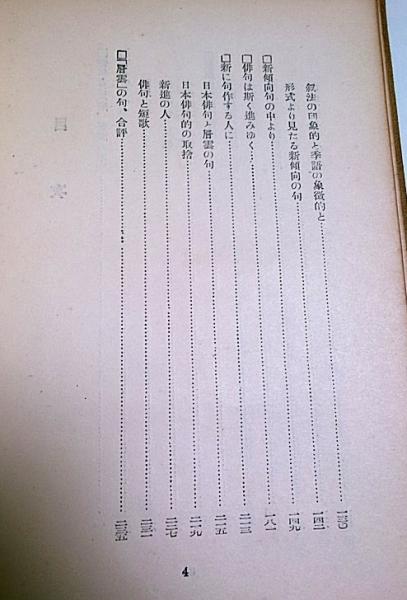 叙法の印象的と季語の象徴的と……………一三七
形式より見たる新傾向の句……………一四二
□新傾向句の中より……………一四九
□俳句は斯く進みゆく……………一八一
□新に句作する人に……………二一三
日本俳句と層雲の句……………二一五
日本俳句的の取捨……………二一九
新進の人……………二二七
俳句と短歌……………二三一
□『層雲』の句、合評……………二三五
目次
4